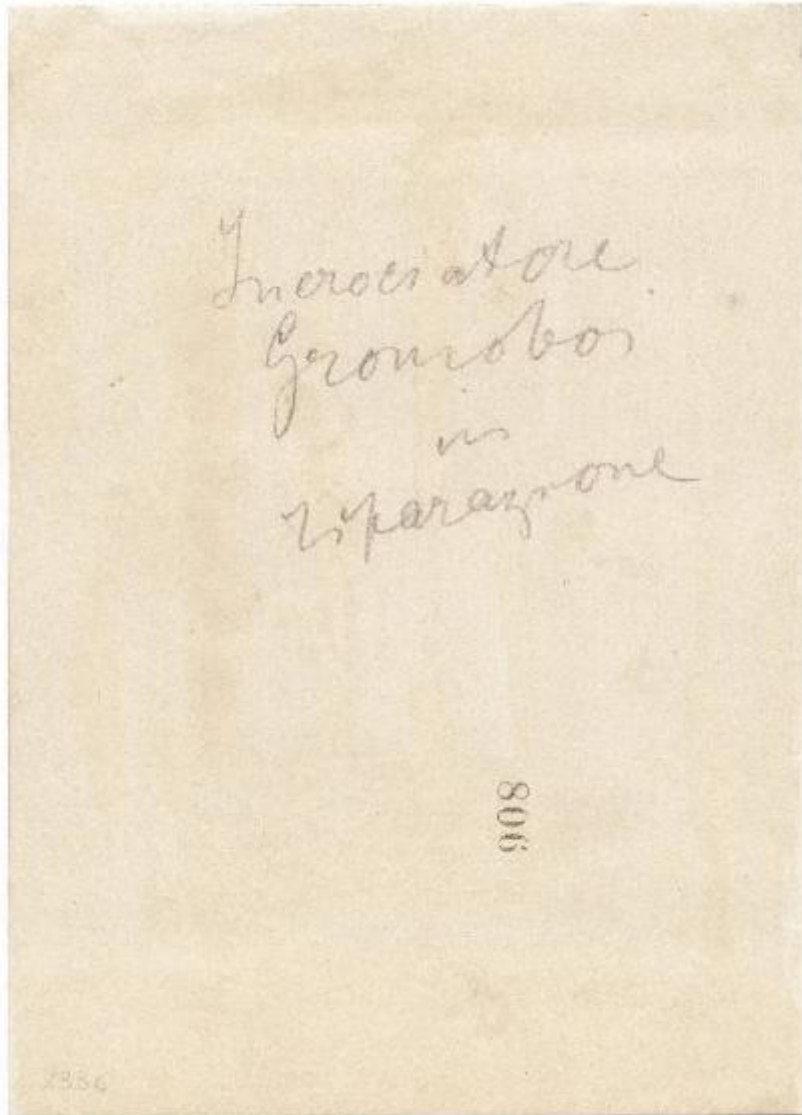 Incrociatore
Gromoboi
in
riparazione
806